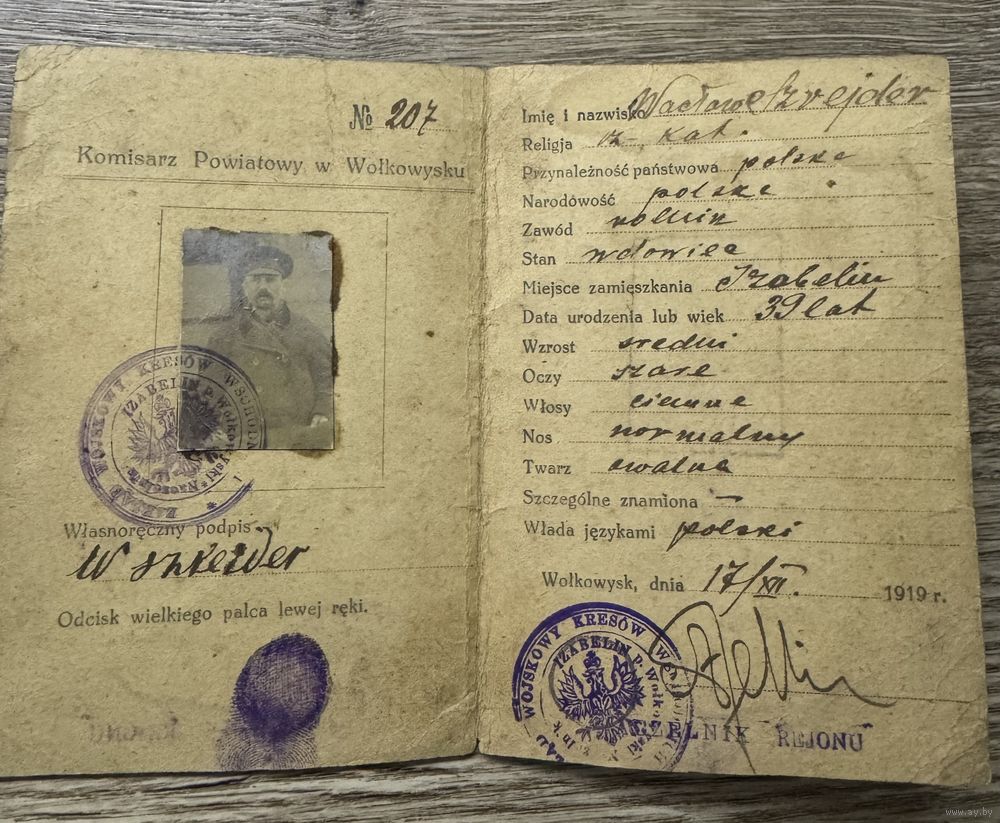 № 207
Komisarz Powiatowy w Wołkowysku
ZARZĄD WOJSKOWY KRESÓW WSCHOD
IZABELIN p. Wołkowyski
Własnoręczny podpis
W Szrejder
Odcisk wielkiego palca lewej ręki.
Imię i nazwisko Wacław Szrejder
Religja rz. kat.
Przynależność państwowa polska
Narodówość polska
Zawód rolnik
Stan wdowiec
Miejsce zamięszkania Izabelin
Data urodzenia lub wiek 39 lat
Wzrost średni
Oczy szare
Włosy ciemne
Nos normalny
Twarz owalna
Szczególne znamiona —
Włada językami polski
Wołkowysk, dnia 17/XII. 1919 r.
WOJSKOWY KRESÓW
IZABELIN p. Wołko
CZELNIK REJONU
www.ay.by